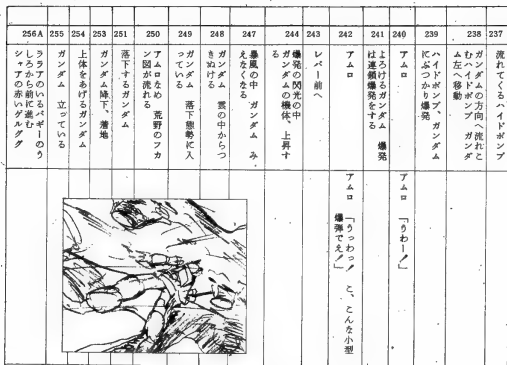 237
流れてくるハイドボンブ
238
ガンダムの方向へ流れこ
むハイドボンブ ガンダ
ム左へ移動
239
ハイドボンブ、ガンダム
にぶつかり爆発
240
アムロ
アムロ 「うわー!」
241
よろけるガンダム 爆発
は連鎖爆発をする
242
アムロ
アムロ 「うっわっ! こ、こんな小型
爆弾でえ!」
243
レバー前へ
244
爆発の閃光の中
ガンダムの機体、上昇す
る
247
暴風の中 ガンダム み
えなくなる
248
ガンダム 雲の中からつ
きぬける
249
ガンダム 落下態勢に入
っている
250
アムロなめ 荒野のフカ
ン図が流れる
251
落下するガンダム
253
ガンダム降下、着地
254
上体をあげるガンダム
255
ガンダム 立っている
256A
ララアのいるバギーのう
しろから前に進む
シャアの赤いゲルググ